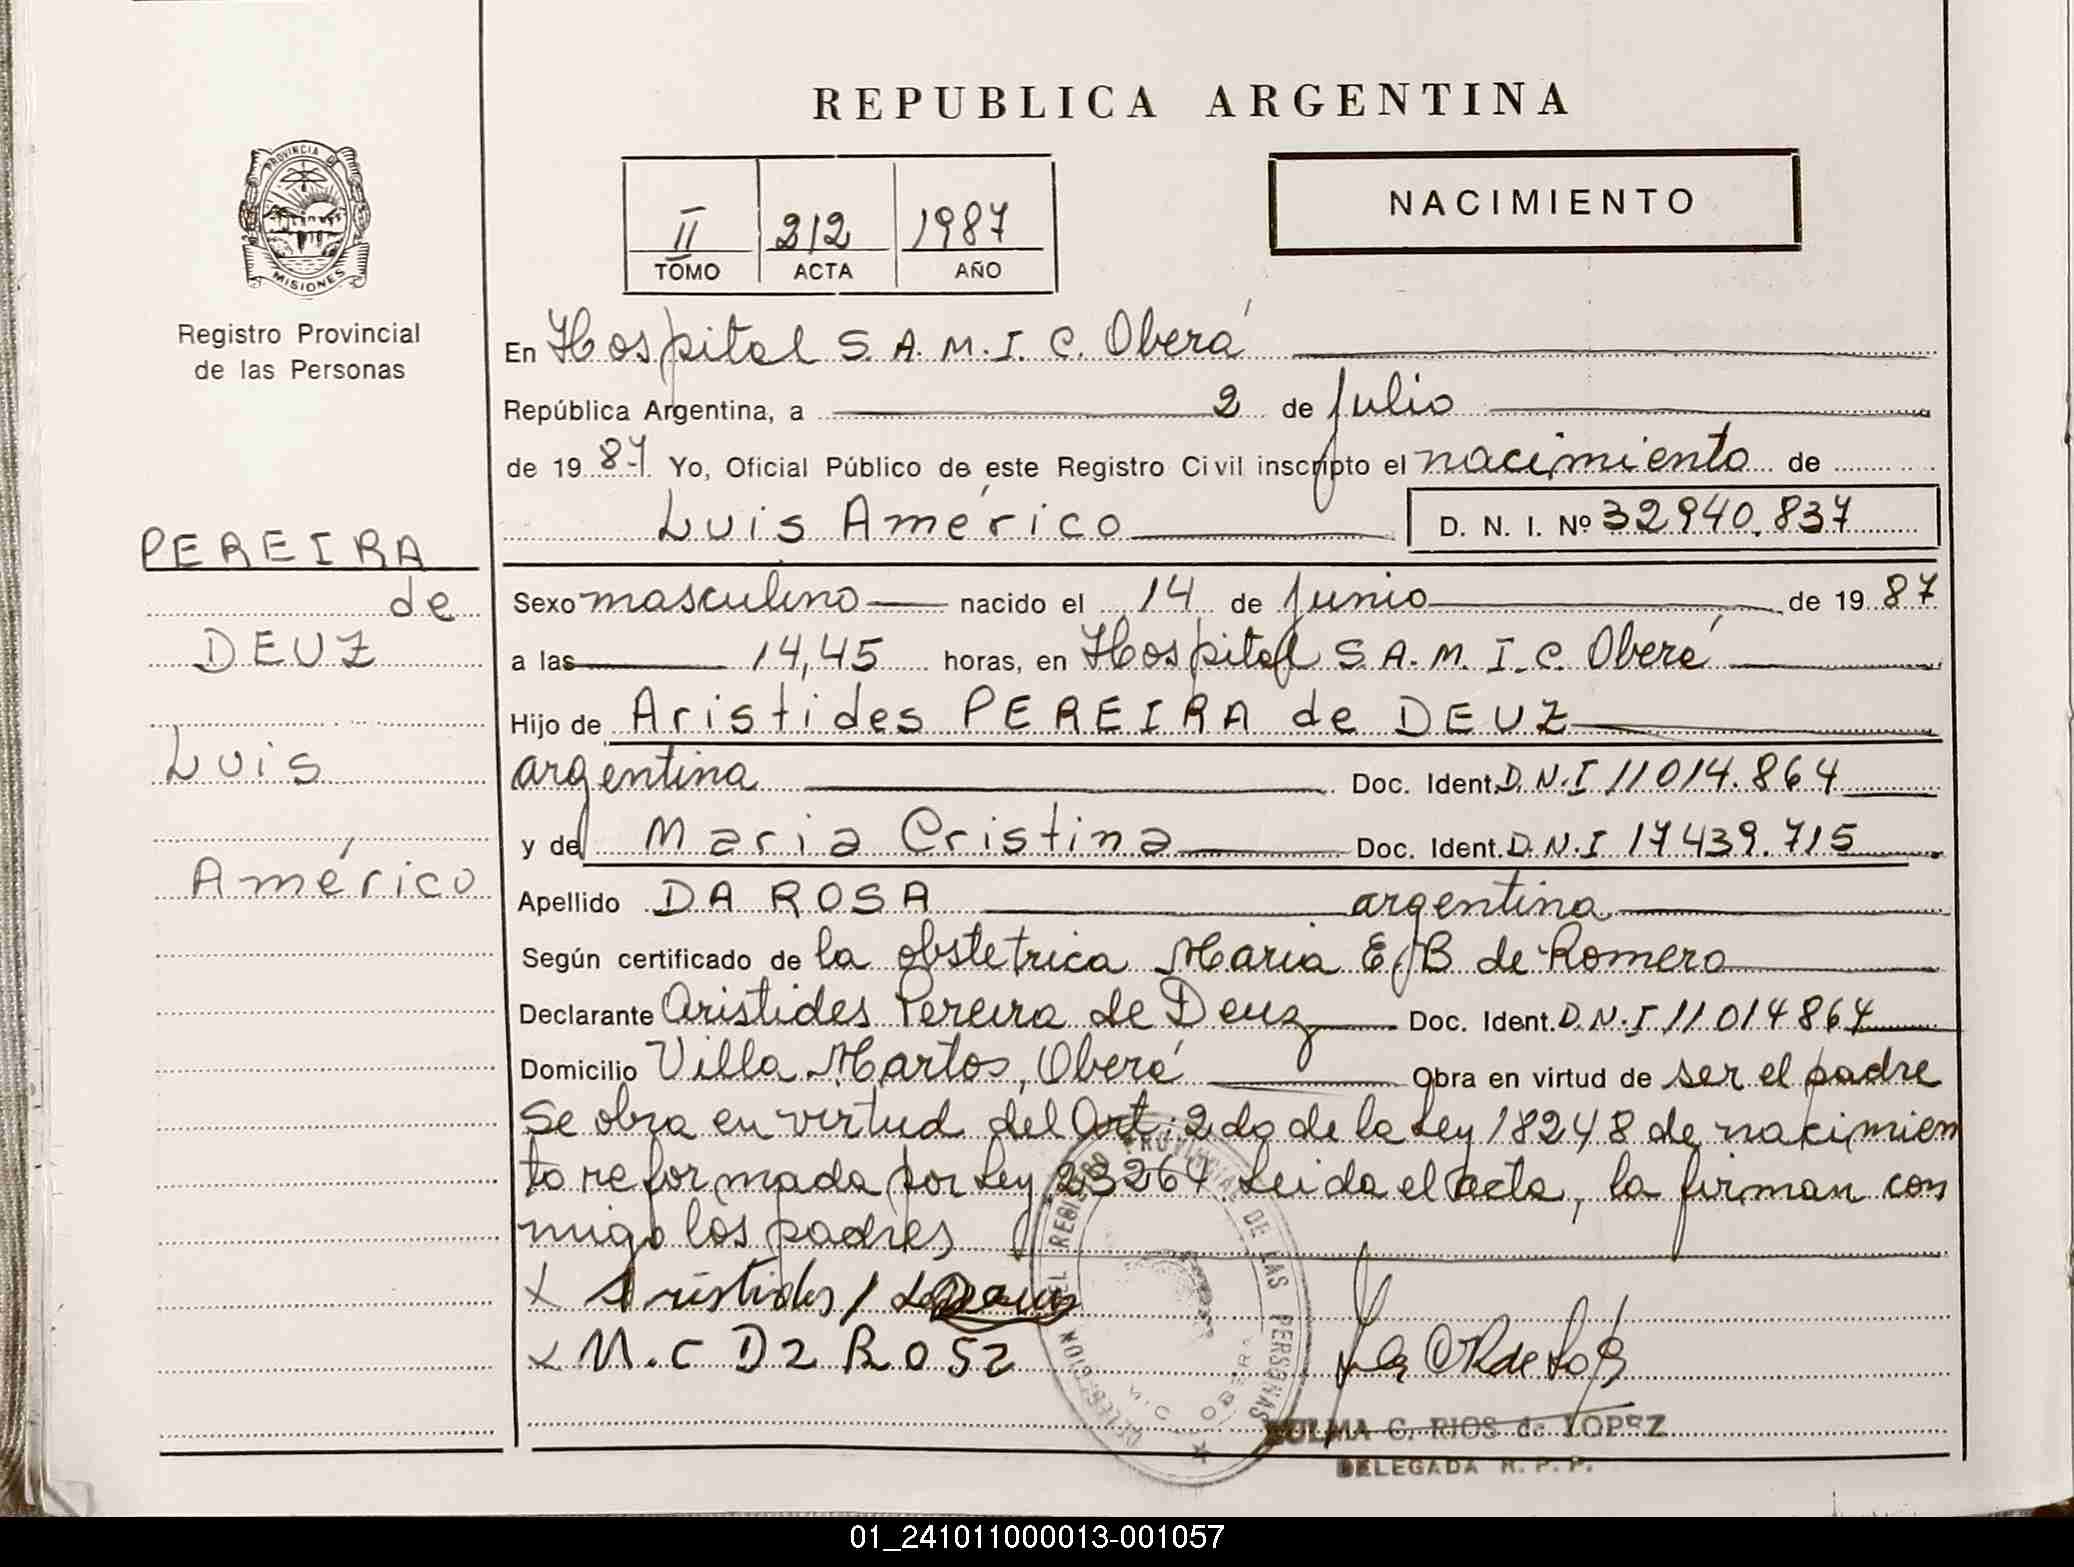 REPUBLICA ARGENTINA
NACIMIENTO
II 212 1987
TOMO ACTA AÑO
PROVINCIA DE MISIONES
Registro Provincial
de las Personas
PEREIRA
de
DEUZ
Luis
Américo
En Hospital S.A.M.I.C. Oberá
República Argentina, a 2 de Julio
de 1987 Yo, Oficial Público de este Registro Civil inscripto el nacimiento de
Luis Américo D. N. I. Nº 32940.837
Sexo masculino nacido el 14 de Junio de 1987
a las 14,45 horas, en Hospital S.A.M.I.C. Oberá
Hijo de Aristides PEREIRA de DEUZ
argentina Doc. Ident. D.N.I 11014.864
y de Maria Cristina Doc. Ident. D.N.I 17439.715
Apellido DA ROSA argentina
Según certificado de la obstetrica Maria E. B de Romero
Declarante Aristides Pereira de Deuz Doc. Ident. D.N.I 11014864
Domicilio Villa Martos, Oberá Obra en virtud de ser el padre
Se obra en virtud del Art. 2do de la Ley 18248 de nacimien
to reformada por Ley 23264 Leida el acta, la firman con
migo los padres
X Aristides
X M.C Da Rosa
DELEGACION DEL REGISTRO PROVINCIAL DE LAS PERSONAS
ZULMA C. RIOS de LOPEZ
DELEGADA R. P. P.
01_241011000013-001057